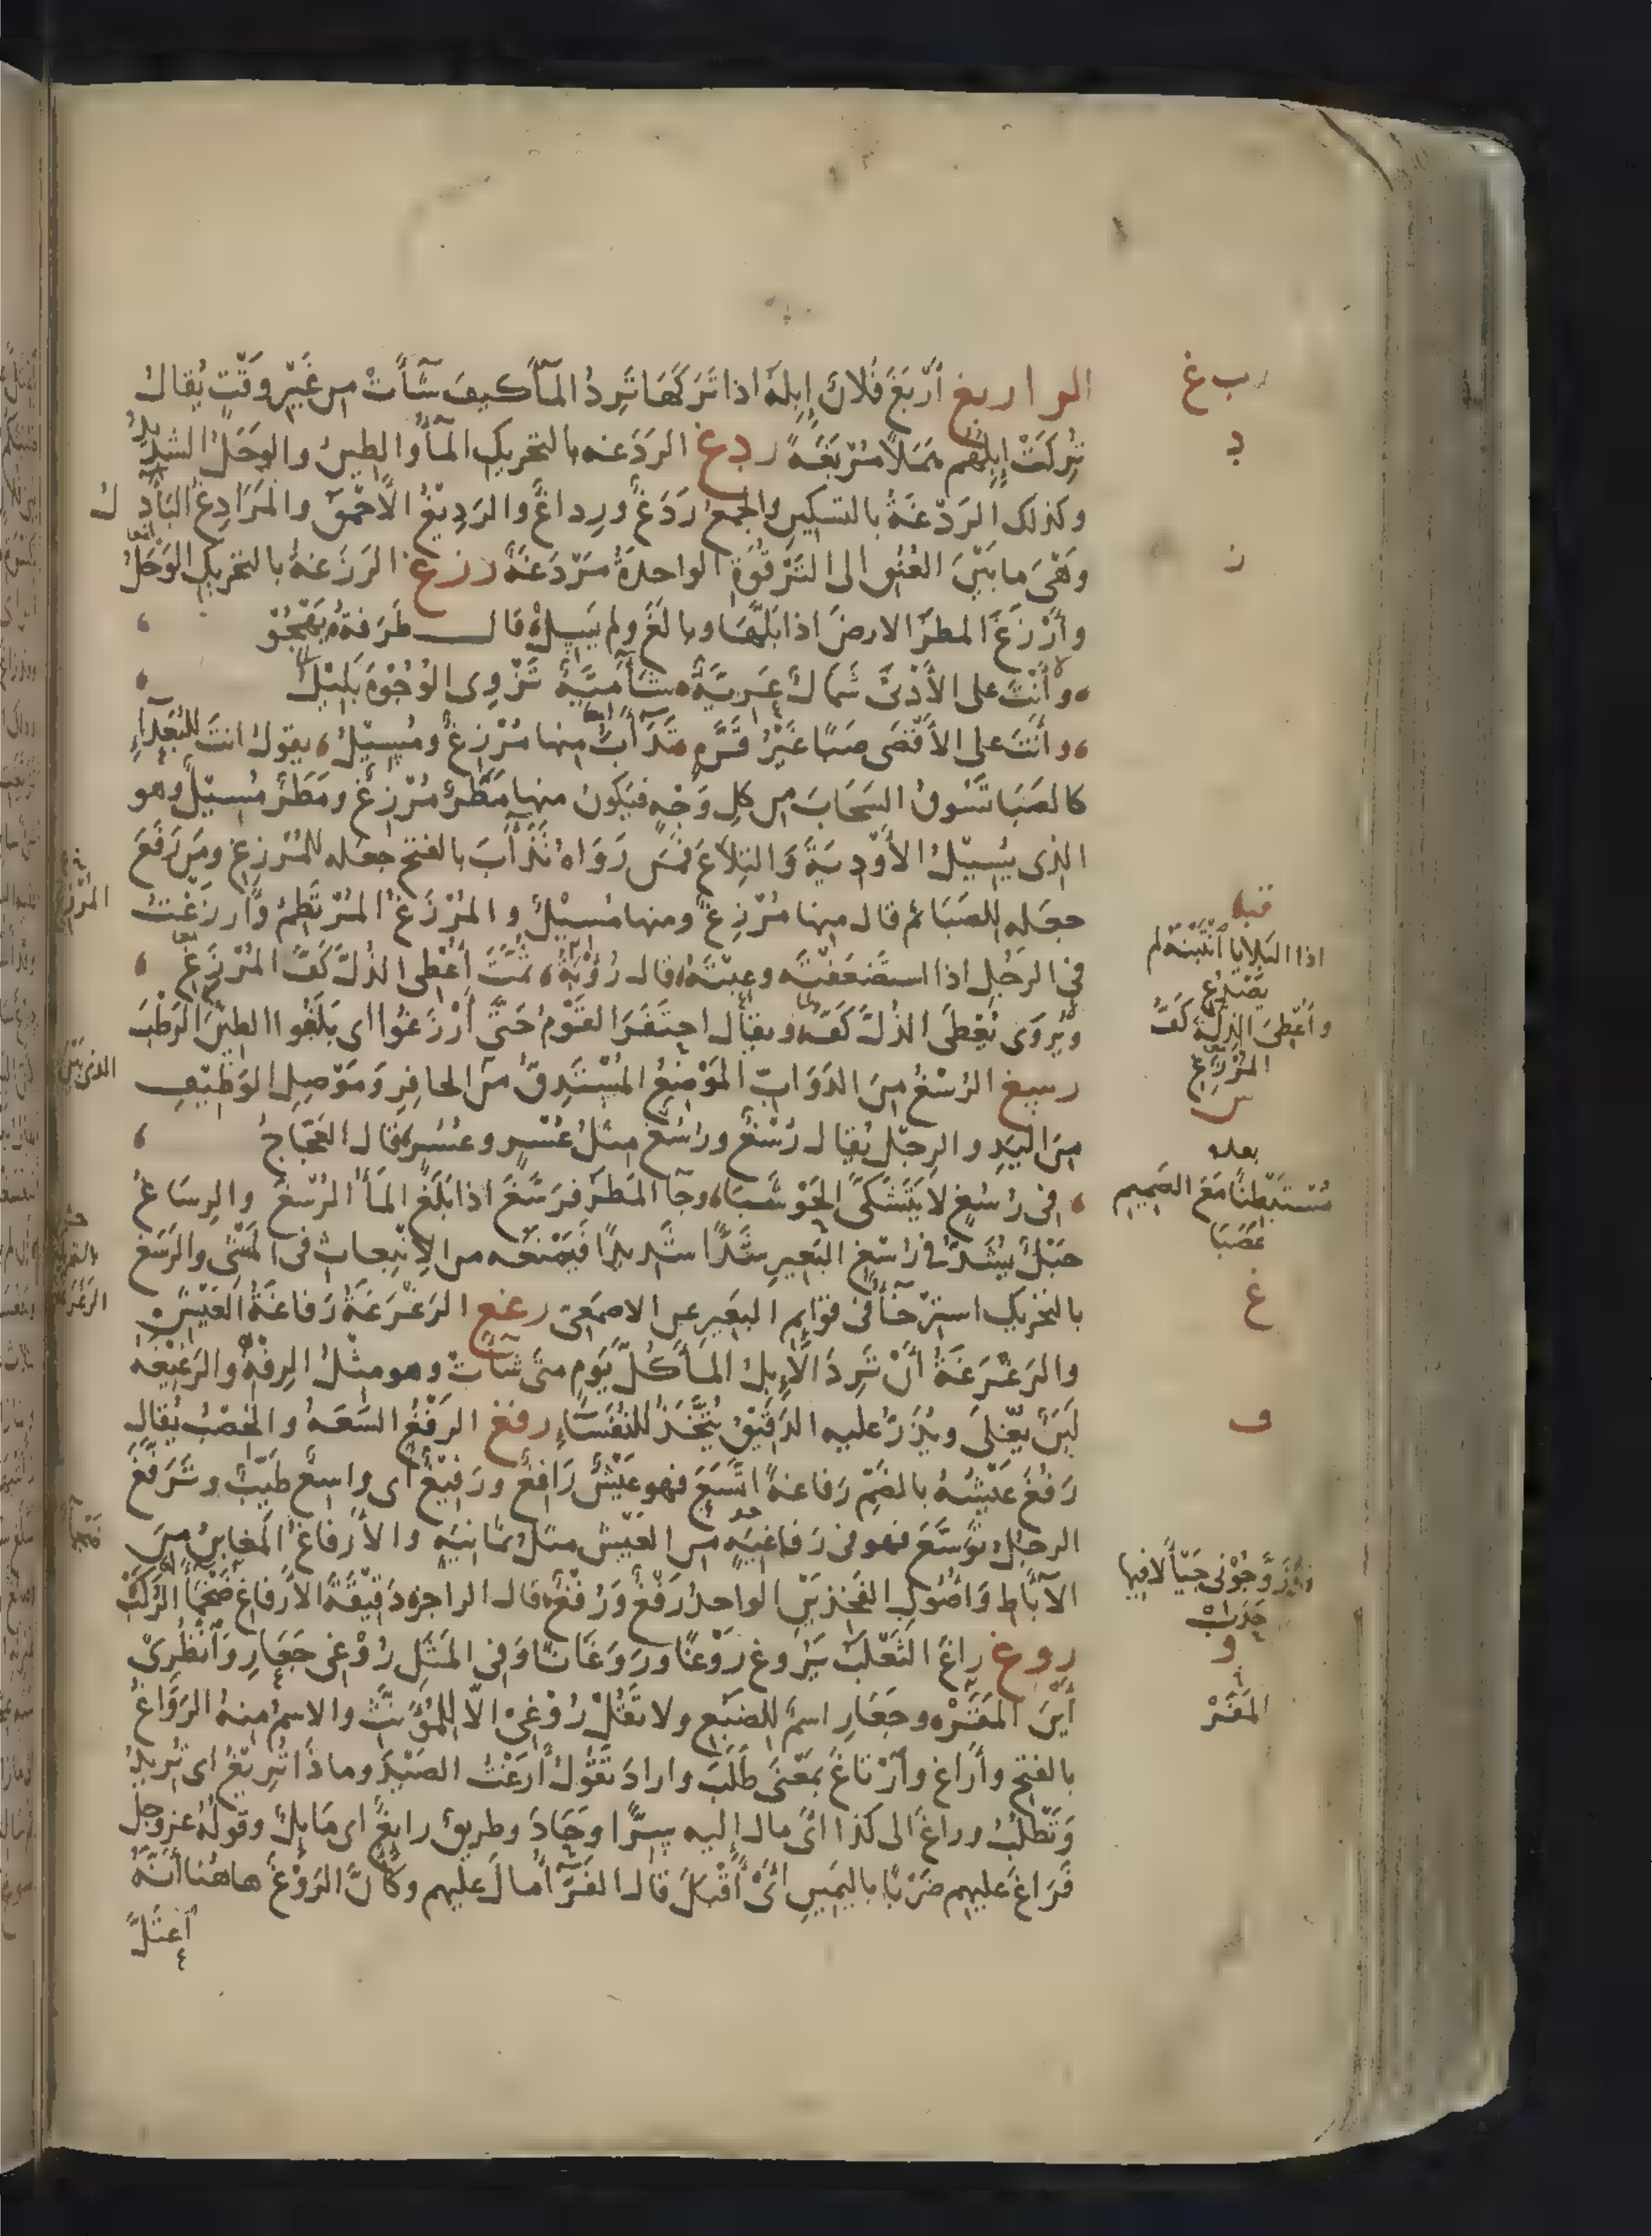 الرا ربغ أَرْبَغَ فُلانٌ إِبِلَهُ اذا تَرَكَهَا تَرِدُ المآءَ كيفَ شآءَتْ من غَيْرِ وقْتٍ يُقالُ
تُرِكَتْ إِبِلُهُم هَمَلاً مُرْبَغَةً ردغ الرَدَغة بالتحريكِ المآءُ والطينُ والوَحَلُ الشديدُ
وكذلك الرَدْغَةُ بالتسكينِ والجمعُ رَدَغٌ ورِداغٌ والرَدِيْغُ الأَحْمَقُ والمَرَادِغُ البَآدِلُ
وَهْىَ ما بَيْنَ العُنُقِ الى التَرْقُوَةِ الواحدةُ مَرْدَغَةٌ رزغ الرَزَغةُ بالتحريكِ الوَحَلُ
وأَرْزَغَ المطرُ الارضَ اذا بَلَّهَا وبالَغَ ولم يَسِلْ قال طَرَفةُ يَهْجُوْ
وأَنْتَ على الأَدْنَى شَمَالٌ عَرِيَّةٌ شَآمِيَّةٌ تَزْوِى الوُجُوْهَ بَلِيْلُ
وأَنْتَ على الأَقْصَى صَبًا غَيْرُ قَرَّةٍ تَذَآءَبَ منها مُرْزِغٌ ومُسِيْلُ يقولُ انتَ للبُعَدآءِ
كالصَبَا تَسُوقُ السَحَابَ من كلِ وَجْهٍ فيَكونُ منها مَطَرٌ مُرْزِغٌ ومَطَرٌ مُسِيْلٌ وهو
الذى يُسِيْلُ الأَوْدِيَةَ وَالتِلاَعَ فمَنْ رَوَاهُ تَذَأَّبَ بالفتح جعَله للمُرْزِغِ ومَن رَفَعَ
جعَله للصَبَا ثم قال منها مُرْزِغٌ ومنها مُسِيْلٌ والمُرْزَغُ المُرْتَطِمُ وأَرْزَغْتُ
فى الرجُلِ اذا استَضعَفْتَه وعِبْتَهُ قال رُؤْبَةُ ثُمَّتَ أَعْطى الذُلَّ كَفَّ المُرْزَغِ
ويُروَى نُعْطَى الذُلَّ كَفَّ ويقال احتَفَرَ القَوْمُ حَتَّى أَرْزَغُوا اى بَلَغُوا الطينَ الرَطْبَ
رسغ الرُسْغُ مِنَ الدَوَابّ المَوْضِعُ المُسْتَدِقُّ منَ الحافِرِ وَمَوْصِلِ الوَظِيْفِ
مِنَ اليَدِ والرِجْلِ يُقال رُسْغٌ ورُسُغٌ مثلُ عُسْرٍ وعُسُرٍ قال العَجّاجُ
فى رُسُغٍ لا يَتَشَكَّى الحَوْشَبَا وجآءَ المَطَرُ فرَسَّغَ اذا بَلَغَ المآءُ الرُسْغَ والرِسَاغُ
حَبْلٌ يُشَدُّ فى رُسْغِ البَعِيرِ شَدًّا شديدًا فيَمْنَعُه من الاِنْبِعاثِ فى المَشْىِ والرَسَغ
بالتحريك استِرْخآءٌ فى قوائِم البَعِيرِ عن الاصمَعِىّ رغغ الرَغْرَغَةُ رَفَاغَةُ العَيْشِ
والرَغْرَغَةُ أَنْ تَرِدَ الاِبِلُ المآءَ كُلَّ يَوْمٍ متَى شآءَتْ وهو مثْلُ الرِفْهِ والرَغِيْغَةُ
لَبَنٌ يُغْلَى ويُذَرُّ عليه الدَقِيْقُ يُتَّخَذُ للنُفَسَآءِ رفغ الرَفْغُ السَعَةُ والخِصْبُ يُقال
رَفُغَ عَيْشُهُ بالضَمِّ رَفاغةً اتَّسَعَ فهو عَيْشٌ رَافِغٌ ورَفِيْغٌ أى واسِعٌ طَيِّبٌ وتَرَفَّغَ
الرجلُ تَوَسَّعَ فهو فى رَفَاغِيَةٍ من العَيْشِ مثلُ ثمَانِيَةٍ والأَرفَاغُ المَغابِنُ مِنَ
الآبَاطِ وَأُصُولِ الفَخِذَيْنِ الواحدُ رَفْغٌ وَرُفْغٌ قال الراجز دَقِيْقَةَ الأَرفاغِ ضَخْمَآءَ الرَكَبْ
روغ راغَ الثَعْلَبُ يَرُوغ رَوْغًا ورَوَغَانًا وَفى المَثَلِ رُوْغِى جَعَارِ وَانْظُرِىْ
أَيْنَ المَفَرُّ وجَعَارِ اسمٌ للضَبُعِ ولا تَقُلْ رُوْغِىْ الاّ للمُؤَنَّثِ والاسمُ منهُ الرَوَاغُ
بالفتح وأَرَاغ وأَرْتَاغَ بمَعْنَى طَلَبَ وارادَ تَقُوْلُ أَرَغْتُ الصَيْدَ وما ذَا تُرِيْغُ اى تُرِيدُ
وَتَطْلُبُ وراغَ الى كذا اىْ مال إليه سِرًّا وحَادَ وطريقٌ رايغٌ اى مَايِلٌ وقولُهُ عز وجل
فَرَاغَ عليهم ضَرْبًا باليَمِينِ أىْ أَقْبَلَ قال الفَرّآءُ مالَ عليهم وكَأنَّ الرَوْغَ هاهُنا أنَّهُ
اعتَلَّ
ربغ
د
ز
قبله
اذا البَلايا انْتَبْنَهُ لم
يَصْدُغِ
وأَعْطِىَ الذِلَّةَ كَفَّ
المُرْزَغِ
س
بعده
مُسْتَبْطِنًا مَعَ الصَمِيمِ
عَصَبَا
غ
ف
و
المَفَرْ